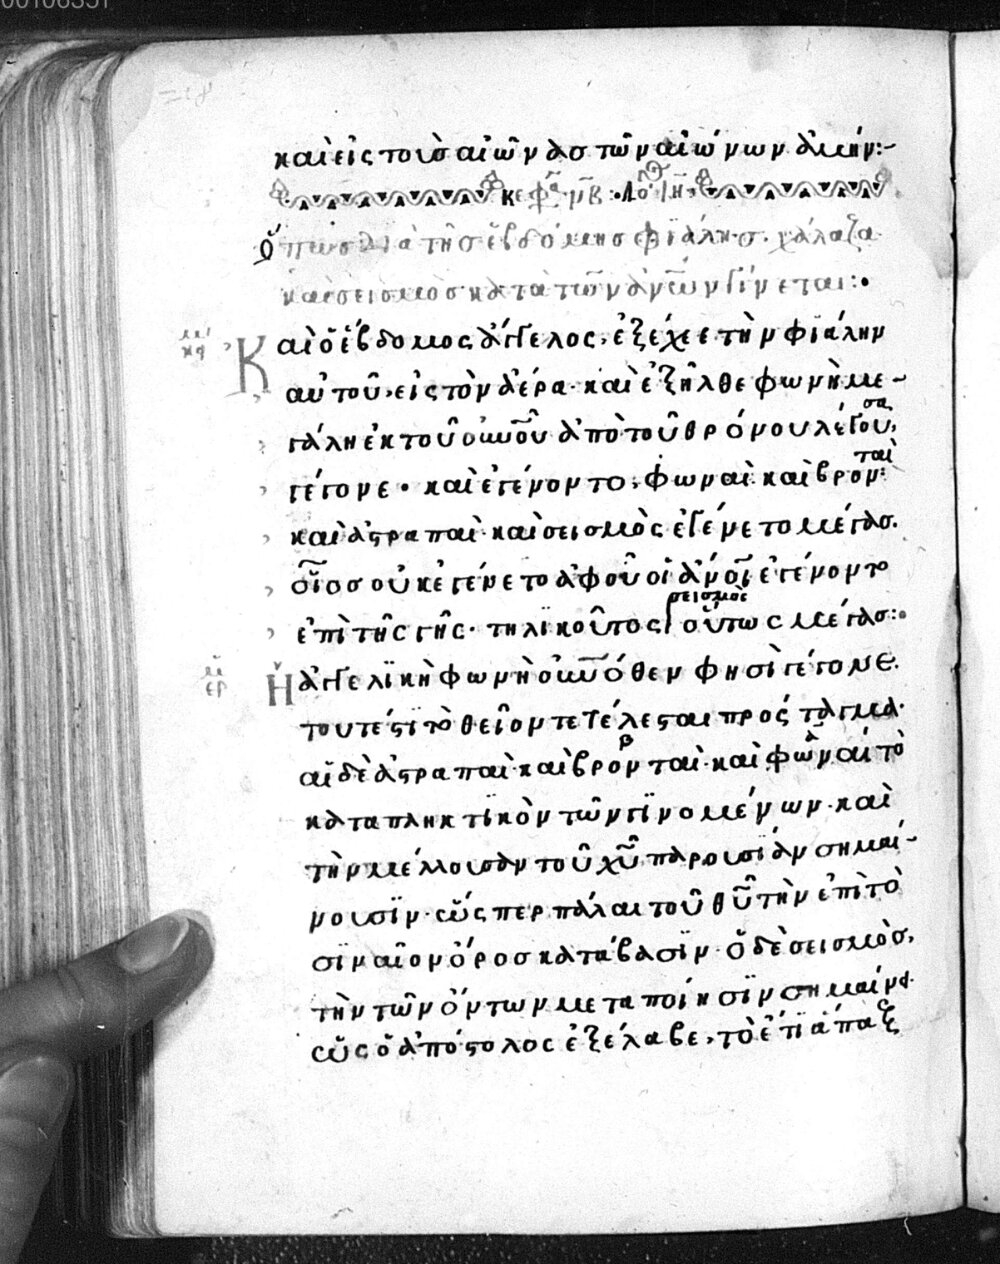 καὶ εἰς τοὺσ αἰῶνασ τῶν αἰώνων ἀμήν:-
κεφ μβ · λο ιη
Ὅπωσ διὰ τῆσ ἑβδόμησ φϊάλησ. χάλαζα
καὶ σεισμὸσ κατὰ τῶν ἀνων γίνεται:·
Καὶ ὁ ἕβδομος ἄγγελος, ἐξέχεε τὴν φϊάλην
αὐτοῦ, εἰς τὸν ἀέρα· καὶ ἐξῆλθε φωνὴ με-
γάλη ἐκ τοῦ οὐνοῦ ἀπὸ τοῦ θρόνου λέγουσα,
γέγονε · καὶ ἐγένοντο, φωναὶ καὶ βρονταὶ
καὶ ἀστραπαὶ· καὶ σεισμὸς ἐγένετο μέγασ.
οἷοσ οὐκ ἐγένετο ἀφ οὗ οἱ ἄνοι ἐγένοντο
ἐπὶ τῆς γῆς· τηλϊκοῦτος σεισμὸς οὕτως μέγασ:·
Ἡ ἀγγελϊκὴ φωνὴ οὐνόθεν φησὶ γέγονε.
τουτέστι τὸ θεῖον τετέλεσται πρόσταγμα·
αἱ δὲ ἀστραπαὶ· καὶ βρονταὶ· καὶ φωναί τὸ
καταπληκτϊκὸν τῶν γϊνομένων· καὶ
τὴν μέλλουσαν τοῦ χυ παρουσίαν σημαί-
νουσϊν· ὥσπερ πάλαι τοῦ θυ τὴν ἐπὶ τὸ
σϊναῖον ὄροσ κατάβασϊν· ὁ δὲ σεισμὸσ,
τὴν τῶν ὄντων μεταποίησϊν σημαίνει·
ὡς ὁ ἀπόστολος ἐξέλαβε, τὸ ἔτϊ ἅπαξ